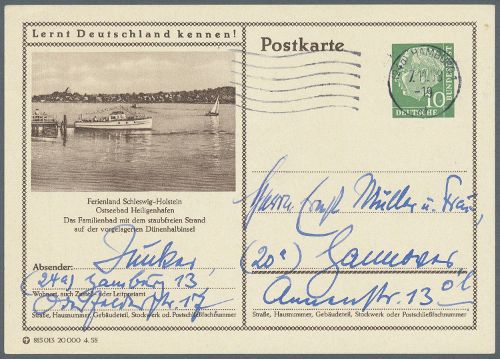 Lernt Deutschland kennen!
Postkarte
HAMBURG
-19
10
DEUTSCHE
BUNDESPOST
Ferienland Schleswig-Holstein
Ostseebad Heiligenhafen
Das Familienbad mit dem staubfreien Strand
auf der vorgelagerten Dünenhalbinsel
Absender:
Junker
(24a) Hamburg 13
Wohnort, auch Zustell- oder Leitpostamt
str. 17
Straße, Hausnummer, Gebäudeteil, Stockwerk oder Postschließfachnummer
Herrn Ernst Müller u. Frau
(20a) Hannover
str. 13
Straße, Hausnummer, Gebäudeteil, Stockwerk oder Postschließfachnummer
20 000 4. 58